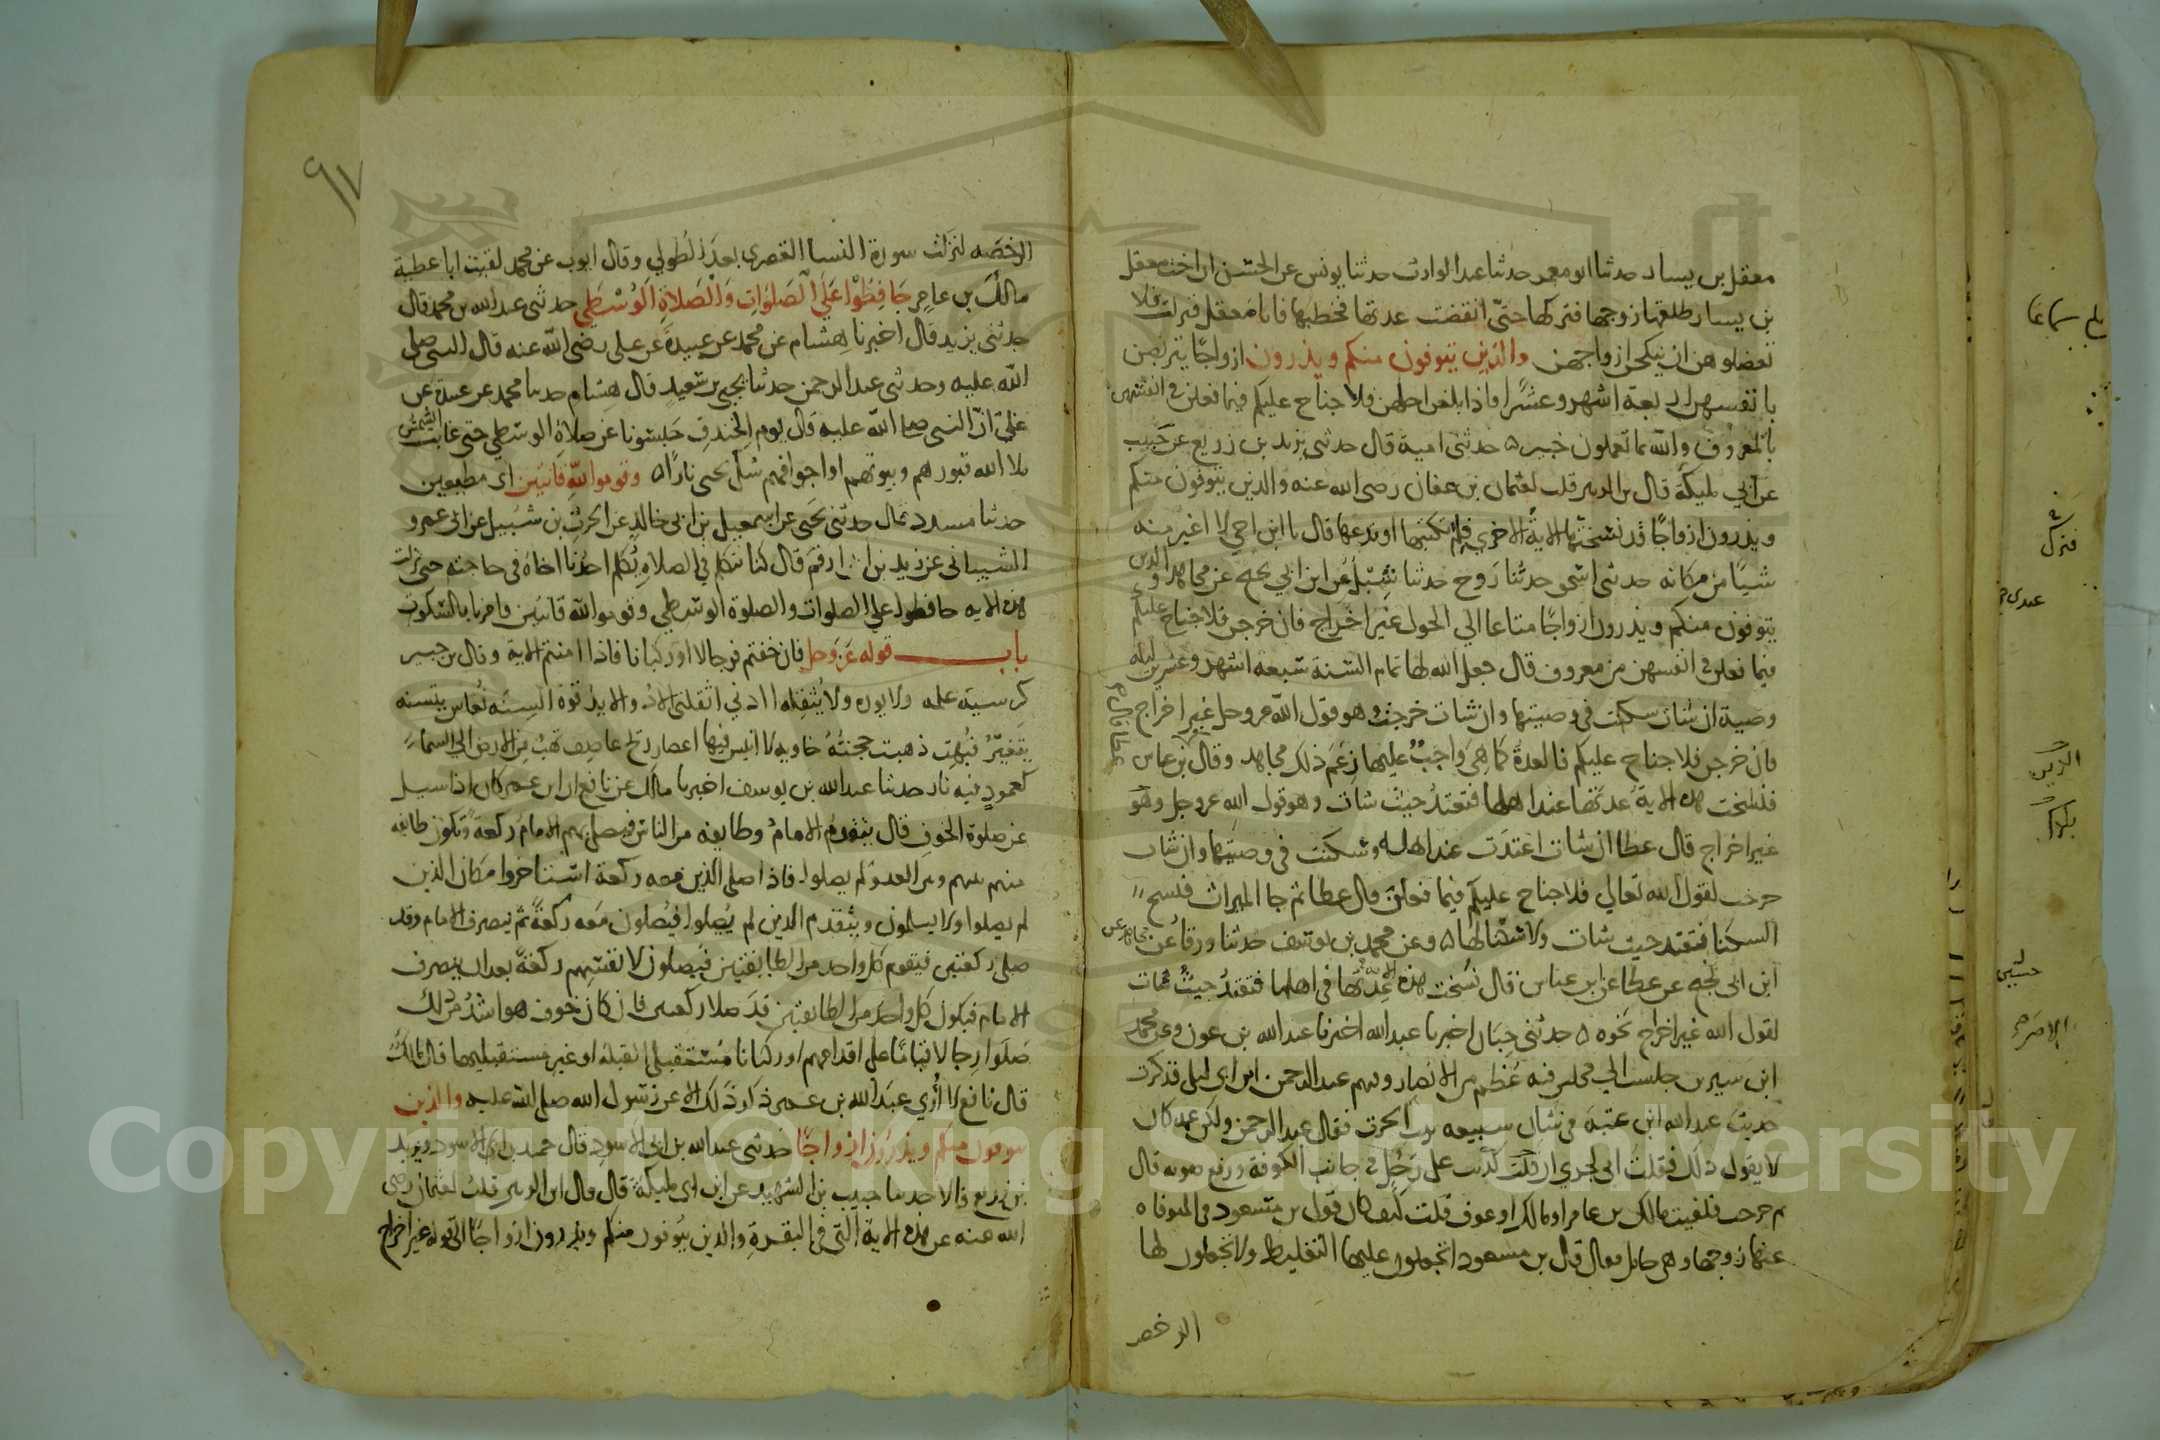 معقل بن يسار حدثنا ابو معمر حدثنا عبد الوارث حدثنا يونس عن الحسن ان اخت معقل
بن يسار طلقها زوجها فتركها حتى انقضت عدتها فخطبها فابا معقل فنزلت فلا
تعضلوهن ان ينكحن ازواجهن والذين يتوفون منكم ويذرون ازواجًا يتربصن
بانفسهن اربعة اشهر وعشرًا فاذا بلغن اجلهن فلا جناح عليكم فيما فعلن في انفسهن
بالمعروف والله بما تعملون خبير حدثنى امية قال حدثنى يزيد بن زريع عن حبيب
عن ابي مليكة قال بن الزبير قلت لعثمان بن عفان رضى الله عنه والذين يتوفون منكم
ويذرون ازواجًا قد نسختها الاية الاخرى فلم تكتبها او تدعها قال يا ابن اخي لا اغير منه
شيئًا من مكانه حدثنى اسحق حدثنا روح حدثنا شبل عن ابن ابي نجيح عن مجاهد والذين
يتوفون منكم ويذرون ازواجًا متاعا الي الحول غير اخراج فان خرجن فلا جناح عليكم
فيما فعلن في انفسهن من معروف قال جعل الله لها تمام السنة سبعه اشهر وعشرين ليله
وصية ان شات سكنت في وصيتها وان شات خرجت وهو قول الله عز وجل غير اخراج
فان خرجن فلا جناح عليكم فالعدة كما هي واجب عليها زعم ذلك مجاهد وقال بن عباس
فنسخت هذه الاية عدتها عند اهلها فتعتد حيث شات وهو قول الله عز وجل وهو
غير اخراج قال عطا ان شات اعتدت عند اهله وسكنت في وصيتها وان شات
خرجت لقول الله تعالي فلا جناح عليكم فيما فعلن قال عطا ثم جا الميراث فنسخ
السكنا فتعتد حيث شات ولا سكنا لها وعن محمد بن يوسف حدثنا ورقا عن
ابن ابى نجيح عن عطا عن ابن عباس قال نسخت هذه الاية عدتها في اهلها فتعتد حيث شات
لقول الله غير اخراج نحوه حدثنى حبان اخبرنا عبد الله اخبرنا عبد الله بن عون وعن محمد
ابن سيرين جلست الى مجلس فيه عظم من الانصار وفيهم عبد الرحمن ابن ابي ليلى فذكرت
حديث عبد الله ابن عتبة في شان سبيعه بنت الحرث فقال عبد الرحمن ولكن عمه كان
لا يقول ذلك فقلت اني لجري ان قلت كذبت على رجل في جانب الكوفة ورفع صوته قال
ثم خرجت فلقيت مالك بن عامر او مالك او عوف قلت كيف كان قول بن مسعود في المتوفاه
عنها زوجها وهي حامل فقال قال بن مسعود اتجعلون عليها التغليظ ولا تجعلون لها
الرخصه
٩٧
الرخصه لنزلت سورة النسا القصرى بعد الطولي وقال ايوب عن محمد لقيت ابا عطية
مالك بن عامر حافظوا علي الصلوات والصلاة الوسطي حدثنى عبد الله بن محمد قال
حدثنى يزيد قال اخبرنا هشام عن محمد عن عبيدة عن علي رضى الله عنه قال النبى صلى
الله عليه وحدثنى عبد الرحمن حدثنا يحيى بن سعيد قال هشام حدثنا محمد عن عبيدة عن
علي ان النبى صلى الله عليه قال يوم الخندق حبسونا عن صلاة الوسطي حتى غابت الشمس
ملا الله قبورهم وبيوتهم او اجوافهم شك يحيى نارًا وقوموا لله قانتين اى مطيعين
حدثنا مسدد قال حدثنى يحيى عن اسمعيل بن ابي خالد عن الحرث بن شبيل عن ابى عمرو
الشيبانى عن زيد بن ارقم قال كنا نتكلم في الصلاة يكلم احدنا اخاه في حاجته حتى نزلت
هذه الاية حافظوا علي الصلوات والصلوة الوسطي وقوموا لله قانتين فامرنا بالسكوت
باب قوله عز وجل فان خفتم فرجالا او ركبانا فاذا امنتم الاية وقال بن جبير
كرسيه علمه ولا يوده ولا يثقله ادني اثقلنى الاد والايد قوة السنه نعاس يتسنه
يتغير فبهت ذهبت حجته خاويه لا انيس فيها اعصار ريح عاصف تهب من الارض الي السماء
كعمود فيه نار حدثنا عبد الله بن يوسف اخبرنا مالك عن نافع ان ابن عمر كان اذا سيل
عن صلوة الخوف قال يتقدم الامام وطايفه من الناس فيصلي بهم الامام ركعة وتكون طايفه
منهم بينهم وبين العدو لم يصلوا فاذا صلى الذين معه ركعة استاخروا مكان الذين
لم يصلوا ولا يسلمون ويتقدم الذين لم يصلوا فيصلون معه ركعة ثم ينصرف الامام وقد
صلى ركعتين فيقوم كل واحد من الطايفتين فيصلون لانفسهم ركعة بعد ان ينصرف
الامام فيكون كل واحد من الطايفتين قد صلا ركعتين فان كان خوف هو اشد من ذلك
صلوا رجالا قيامًا على اقدامهم او ركبانا مستقبلي القبلة او غير مستقبليها قال مالك
قال نافع لا اري عبد الله بن عمر ذكر ذلك الا عن رسول الله صلى الله عليه والذين
يتوفون منكم ويذرون ازواجًا حدثنى عبد الله بن ابي الاسود قال حميد بن الاسود ويزيد
بن زريع قالا حدثنا حبيب بن الشهيد عن ابن ابى مليكة قال قال ابن الزبير قلت لعثمان رضى
الله عنه عن هذه الاية التى في البقرة والذين يتوفون منكم ويذرون ازواجًا الى قوله غير اخراج
Copyright © King Saud University